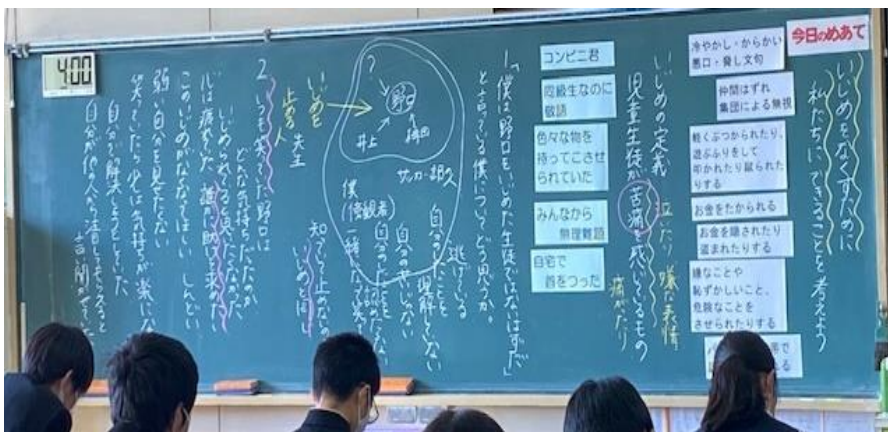 今日のめあて
いじめをなくすために
私たちにできることを考えよう
冷やかし・からかい
悪口・脅し文句
仲間はずれ
集団による無視
軽くぶつかられたり、
遊ぶふりをして
叩かれたり蹴られた
りする
お金をたかられる
お金を隠されたり
盗まれたりする
嫌なことや
恥ずかしいこと、
危険なことを
させられたりする
いじめの定義
児童生徒が苦痛を感じているもの
泣いたり
嫌な表情
痛がったり
コンビニ君
同級生なのに
敬語
色々な物を
持ってこさせ
られていた
みんなから
無理難題
自宅で
首をつった
1.「僕は野口をいじめた生徒ではないはずだ」
と言っている僕についてどう思うか。
逃げている
自分のしたことを
理解していない
自分のせいじゃない
自分のしたことを
認めたくない
一緒になって笑
知ってて止めないの
いじめと同じ
野口
?
井上
サッカー部久
僕
(傍観者)
いじめを
止める人
先生
2.いつも笑っていた野口は
どんな気持ちだったのか
いじめられてると思いたくなかった
心は疲れてた
誰かに助けを求めたい
このいじめがなくなってほしい
しんどい
弱い自分を見せたくない
笑っていたら少しは気持ちが楽になる
自分で解決しようとしていた
自分が他の人から注目してもらえると
4:00